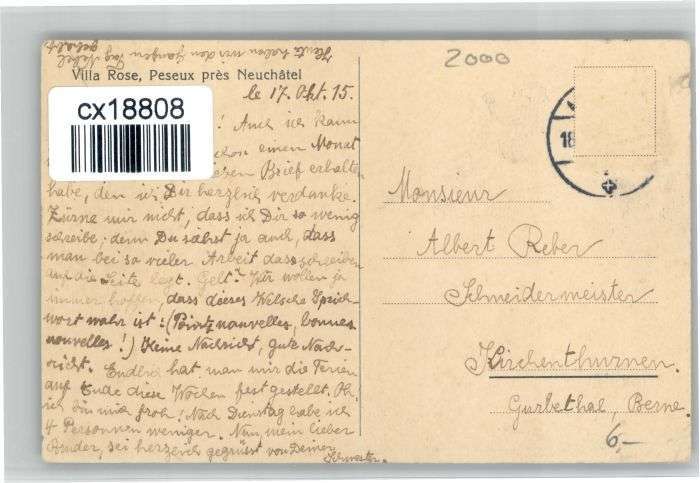 Heute haben wir den ganzen Tag Nebel
gehabt.
Villa Rose, Peseux près Neuchâtel
le 17. Okt. 15.
cx18808
! Auch ich kann
schon einen Monat
Brief erhalten
habe, den ich Dir herzlich verdanke.
Zürne mir nicht, dass ich Dir so wenig
schreibe; denn Du siehst ja auch, dass
man bei so vieler Arbeit das schreiben
auf die Seite legt. Gelt? Wir wollen ja
immer hoffen, dass dieses Welsche Sprich-
wort wahr ist: (Point nouvelles, bonnes
nouvelles!) Keine Nachricht, gute Nach-
richt. Endlich hat man mir die Ferien
auf Ende diese Wochen fest gestellt. Oh,
ich bin froh! Nach Dienstag habe ich
4 Personnen weniger. Nun, mein lieber
Bruder, sei herzlich gegrüsst von Deiner
Schwester.
2000
18
Monsieur
Albert Reber
Schneidermeister
Kirchenthurnen.
Gürbethal, Berne.
6,-